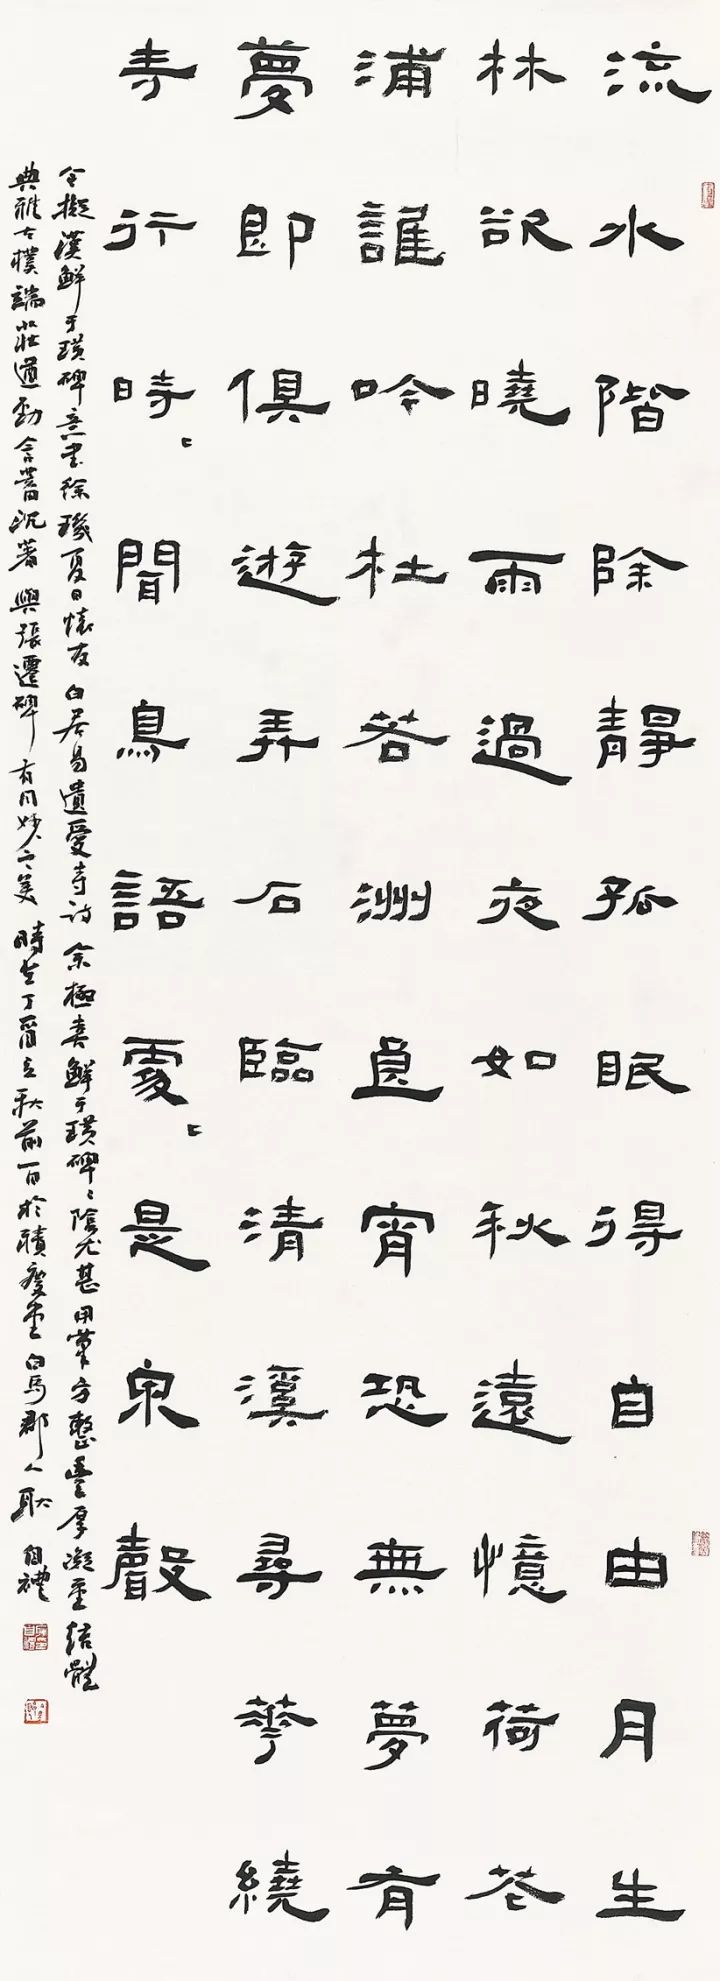 流水階除靜孤眠得自由月生
林欲曉雨過夜如秋遠憶荷花
浦誰吟杜若洲直宵恐無夢有
夢即俱遊弄石臨清溪尋華繞
寺行時〻聞鳥語處〻是泉聲
今擬漢鮮于璜碑意書徐璣夏日懷友白居易遺愛寺詩余極喜鮮于璜碑〻陰尤甚用筆方整豐厚凝重結體
典雅古樸端莊遒勁含蓄沉著與張遷碑有同妙之美時在丁酉立秋前一日於積慶堂白馬郡人耿自禮